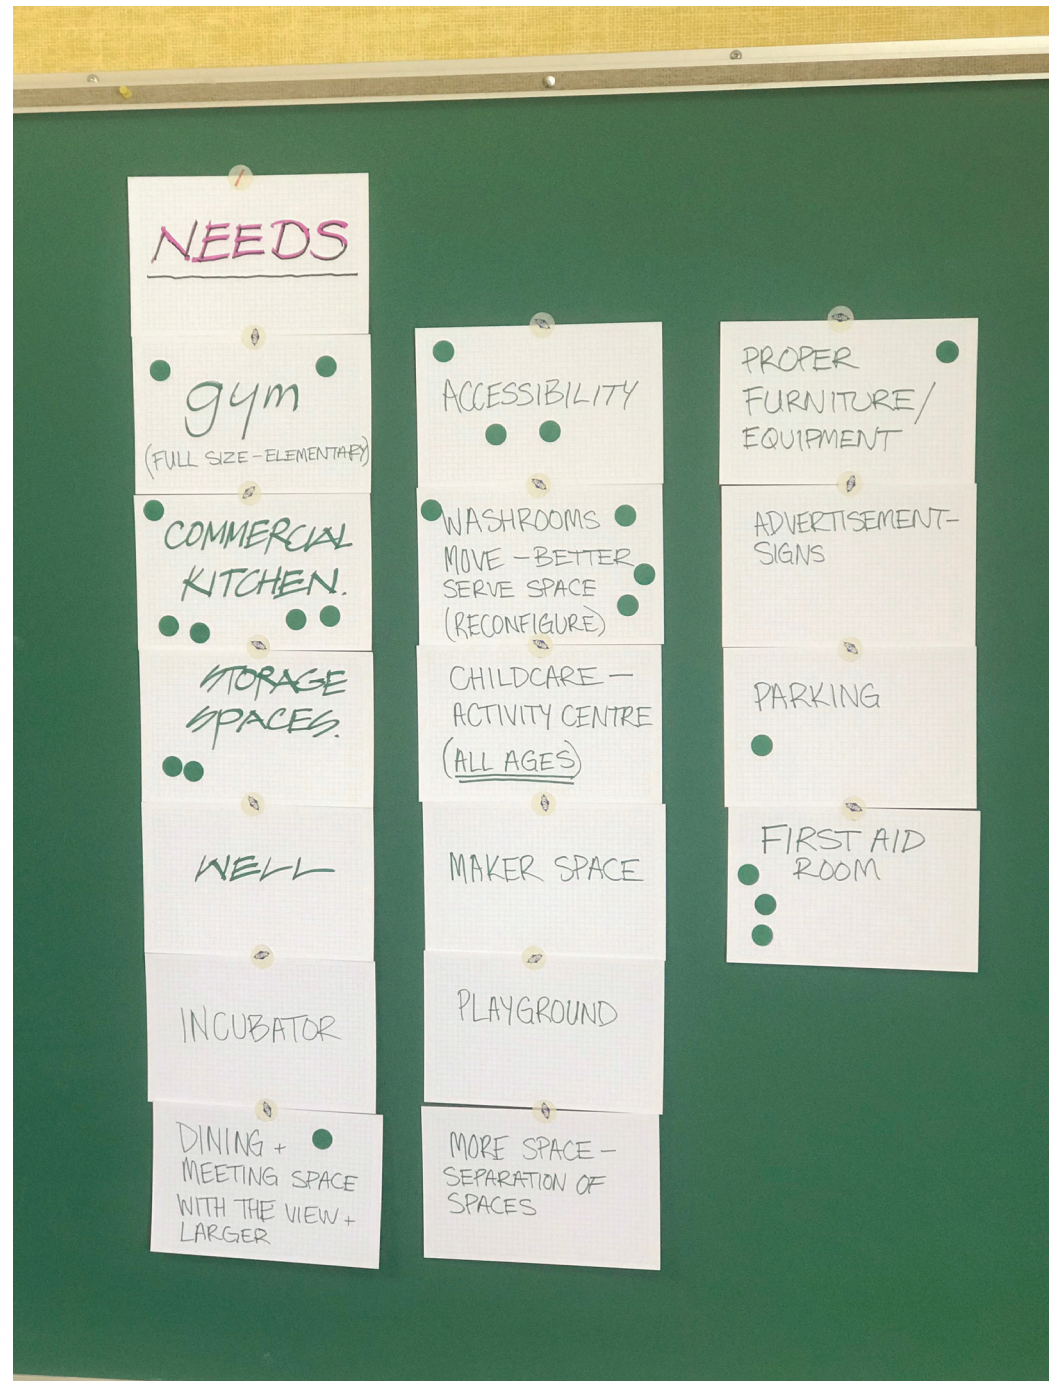 NEEDS
gym
(FULL SIZE-ELEMENTARY)
COMMERCIAL
KITCHEN.
STORAGE
SPACES.
WELL
INCUBATOR
DINING +
MEETING SPACE
WITH THE VIEW +
LARGER
ACCESSIBILITY
WASHROOMS
MOVE - BETTER
SERVE SPACE
(RECONFIGURE)
CHILDCARE -
ACTIVITY CENTRE
(ALL AGES)
MAKER SPACE
PLAYGROUND
MORE SPACE -
SEPARATION OF
SPACES
PROPER
FURNITURE/
EQUIPMENT
ADVERTISEMENT-
SIGNS
PARKING
FIRST AID
ROOM